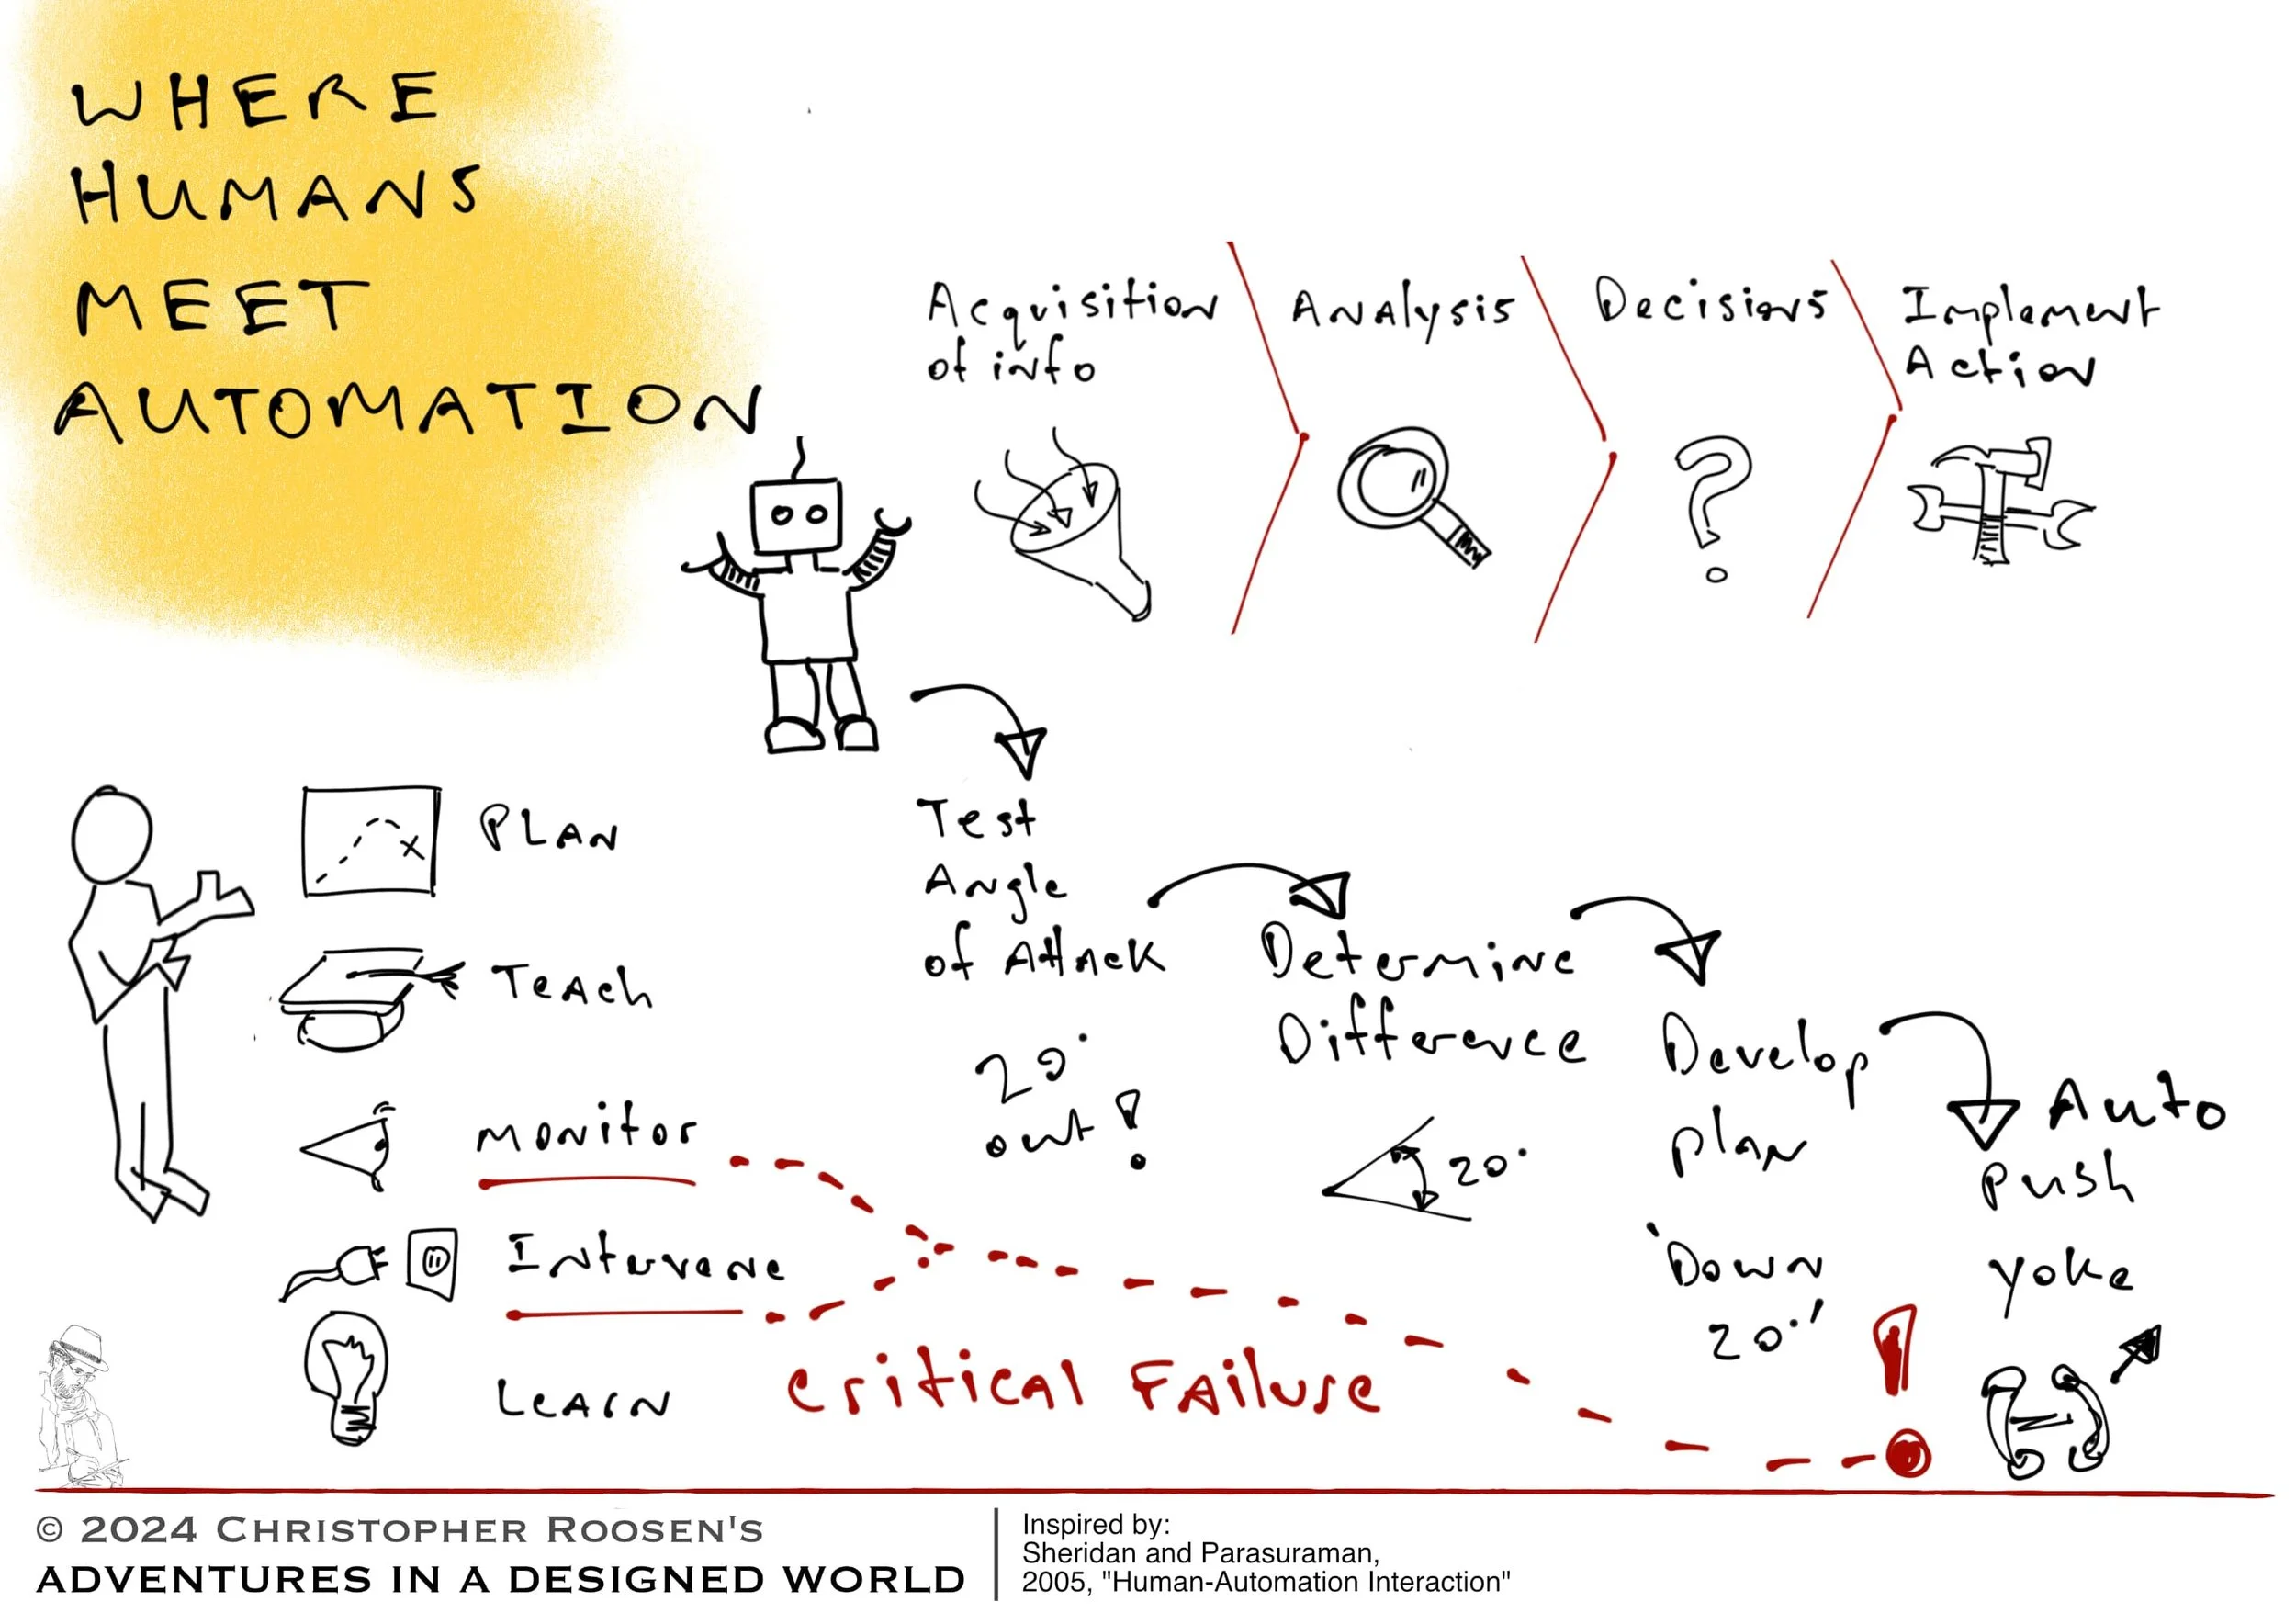 WHERE
HUMANS
MEET
AUTOMATION
Acquisition
of info
Analysis
Decisions
Implement
Action
PLAN
Teach
Monitor
Intervene
Learn
Test
Angle
of Attack
20°
out!
Determine
Difference
20°
Develop
plan
'Down
20°'
Auto
push
yoke
Critical Failure
© 2024 CHRISTOPHER ROOSEN'S
ADVENTURES IN A DESIGNED WORLD
Inspired by:
Sheridan and Parasuraman,
2005, "Human-Automation Interaction"